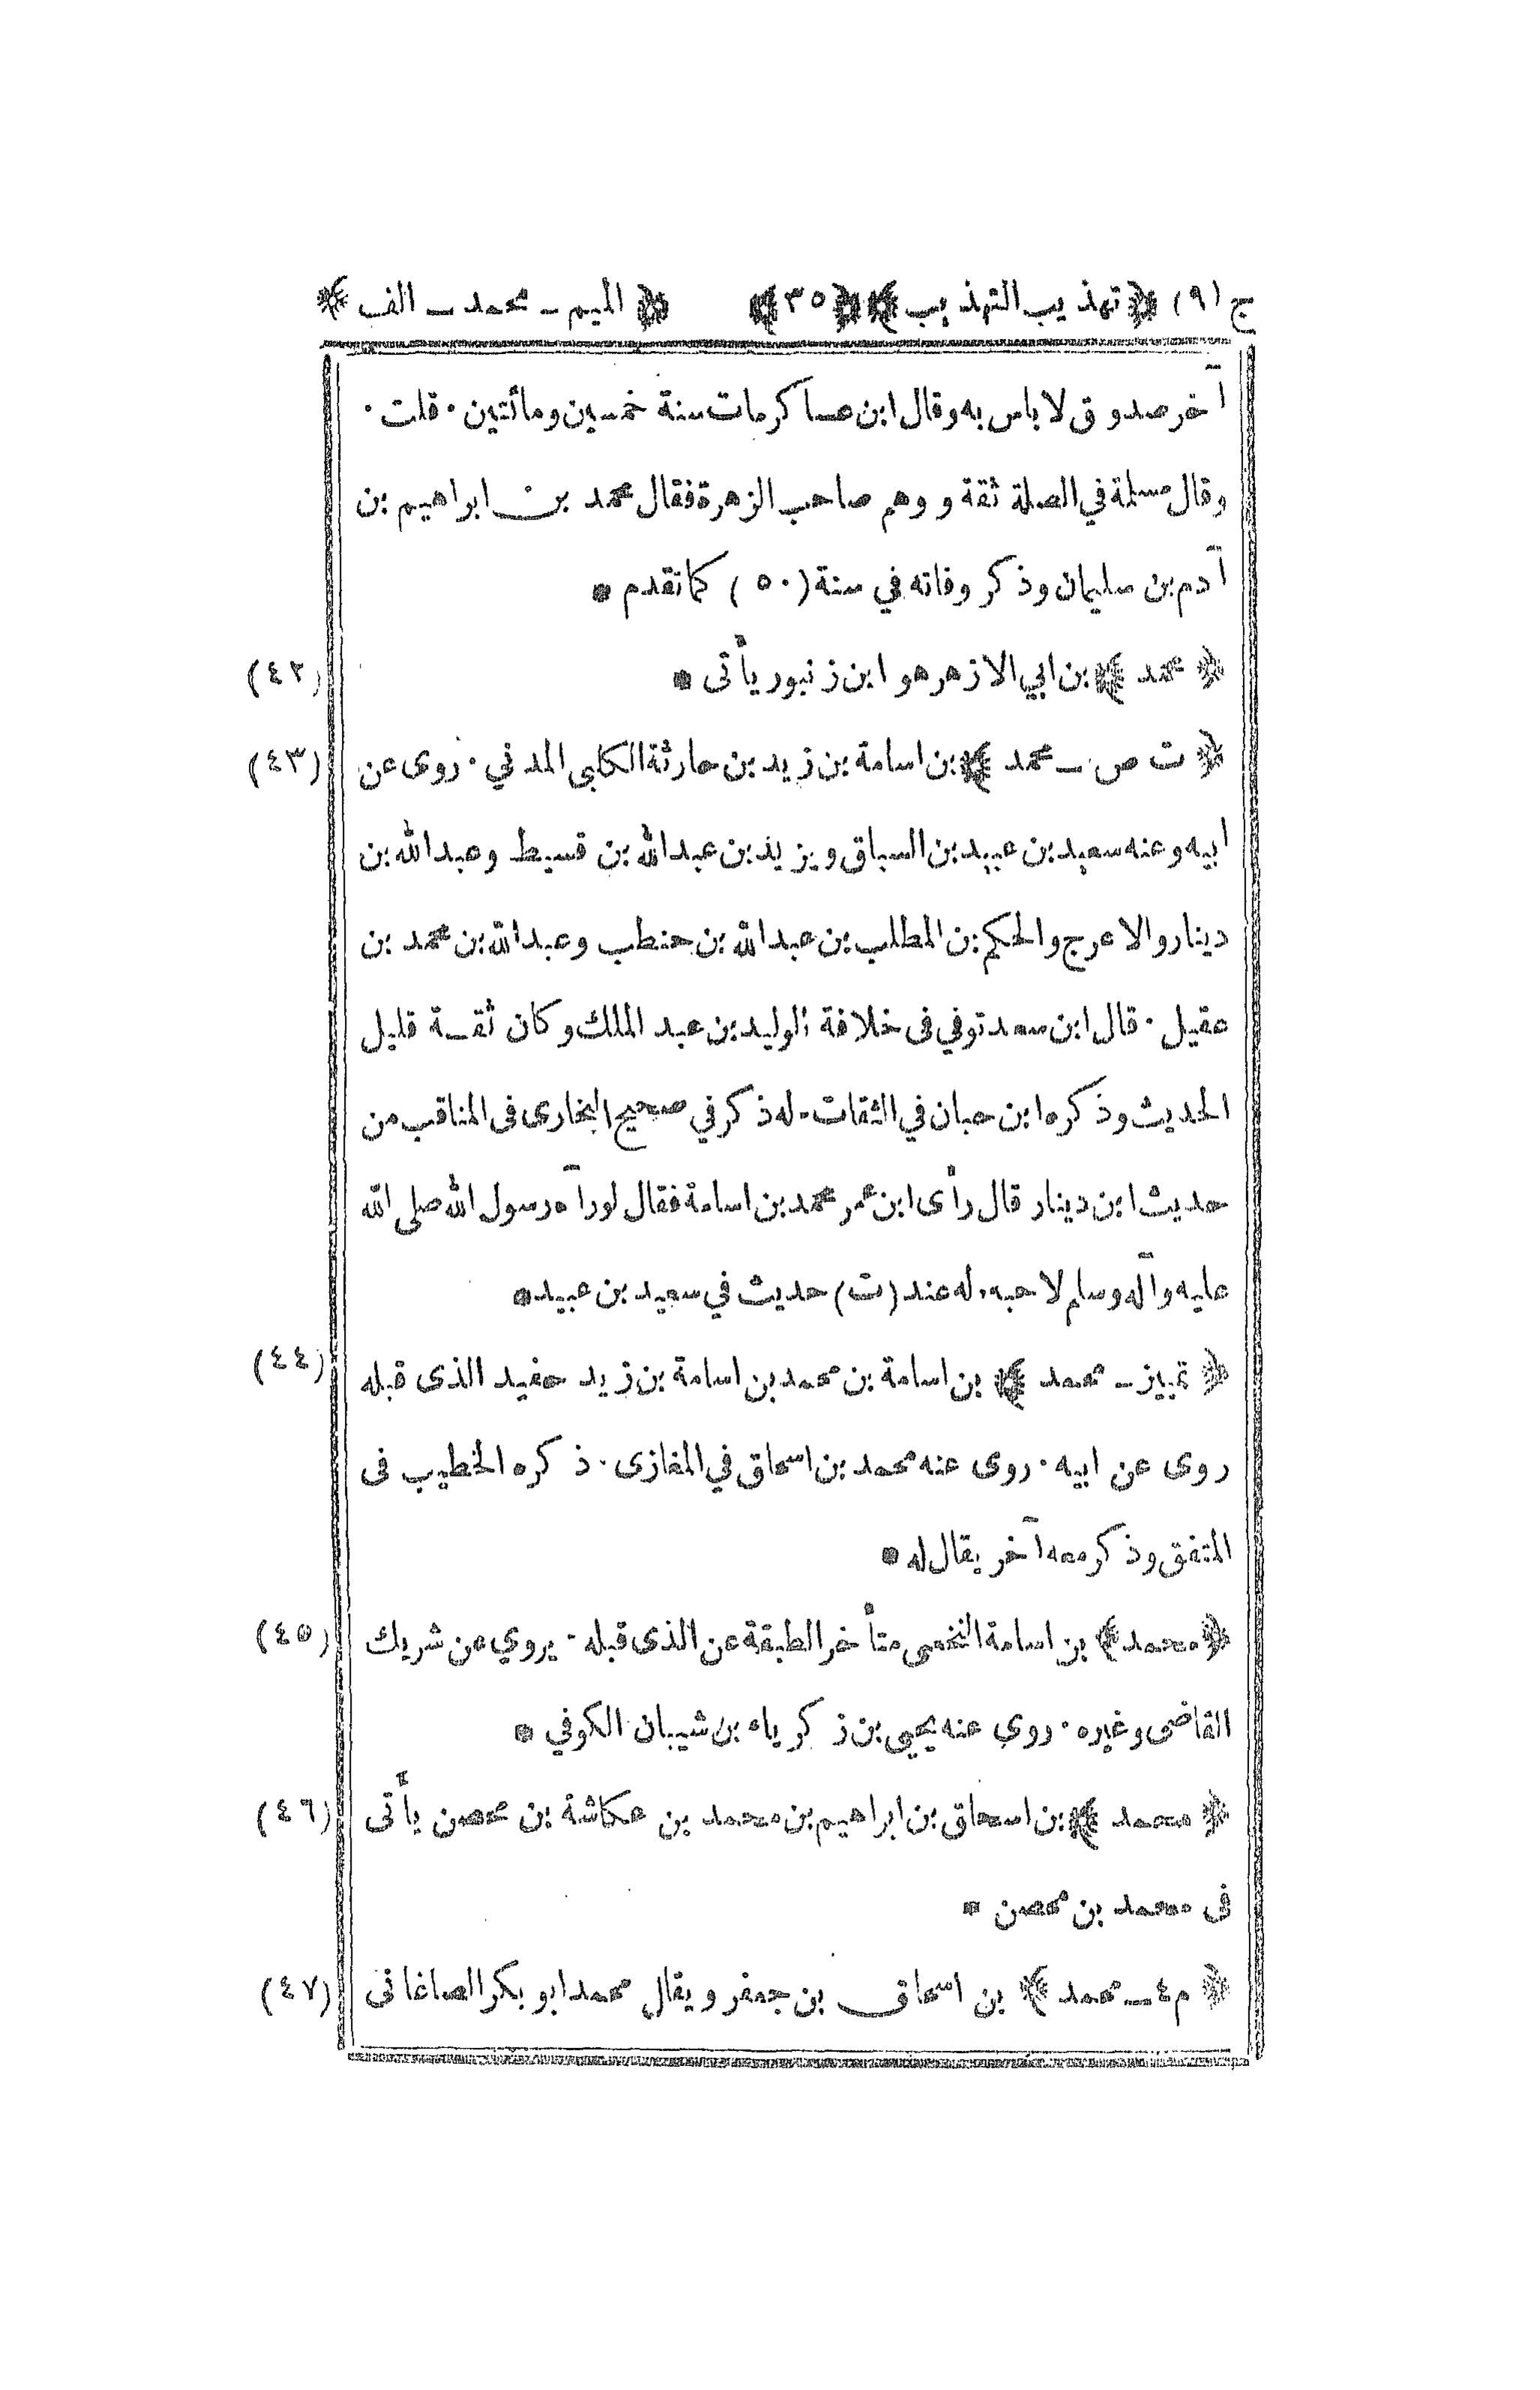 ج (٩) ﴿ تهذيب التهذيب ﴾ ﴿٣٥﴾ ﴿ الميم ـ محمد ـ الف ﴾
آخر صدوق لا باس به وقال ابن عساكر مات سنة خمسين ومائتين ٠ قلت ٠
وقال مسلمة في الصلة ثقة و وهم صاحب الزهرة فقال محمد بن ابراهيم بن
آدم بن سليمان وذكر وفاته في سنة (٥٠) كما تقدم *
﴿ محمد ﴾ بن ابي الازهر هو ابن زنبور يأتى * (٤٢)
﴿ ت ص ـ محمد ﴾ بن اسامة بن زيد بن حارثة الكلبى المدني ٠ روى عن (٤٣)
ابيه وعنه سعيد بن عبيد بن السباق ويزيد بن عبدالله بن قسيط وعبدالله بن
دينار والاعرج والحكم بن المطلب بن عبدالله بن حنطب وعبدالله بن محمد بن
عقيل ٠ قال ابن سعد توفي فى خلافة الوليد بن عبد الملك وكان ثقة قليل
الحديث وذكره ابن حبان في الثقات ٠ له ذكر في صحيح البخارى فى المناقب من
حديث ابن دينار قال رأى ابن عمر محمد بن اسامة فقال لو رآه رسول الله صلى الله
عليه وآله وسلم لاحبه ٠ له عند (ت) حديث في سعيد بن عبيد *
﴿ تمييز ـ محمد ﴾ بن اسامة بن محمد بن اسامة بن زيد حفيد الذى قبله (٤٤)
روى عن ابيه ٠ روى عنه محمد بن اسحاق في المغازى ٠ ذكره الخطيب فى
المتفق وذكر معه آخر يقال له *
﴿ محمد ﴾ بن اسامة النخعى متأخر الطبقة عن الذى قبله ٠ يروي عن شريك (٤٥)
القاضى وغيره ٠ روى عنه يحيى بن زكرياء بن شيبان الكوفي *
﴿ محمد ﴾ بن اسحاق بن ابراهيم بن محمد بن عكاشة بن محصن يأتى (٤٦)
فى محمد بن محصن *
﴿ م ٤ ـ محمد ﴾ بن اسحاق بن جعفر ويقال محمد ابو بكر الصاغانى (٤٧)